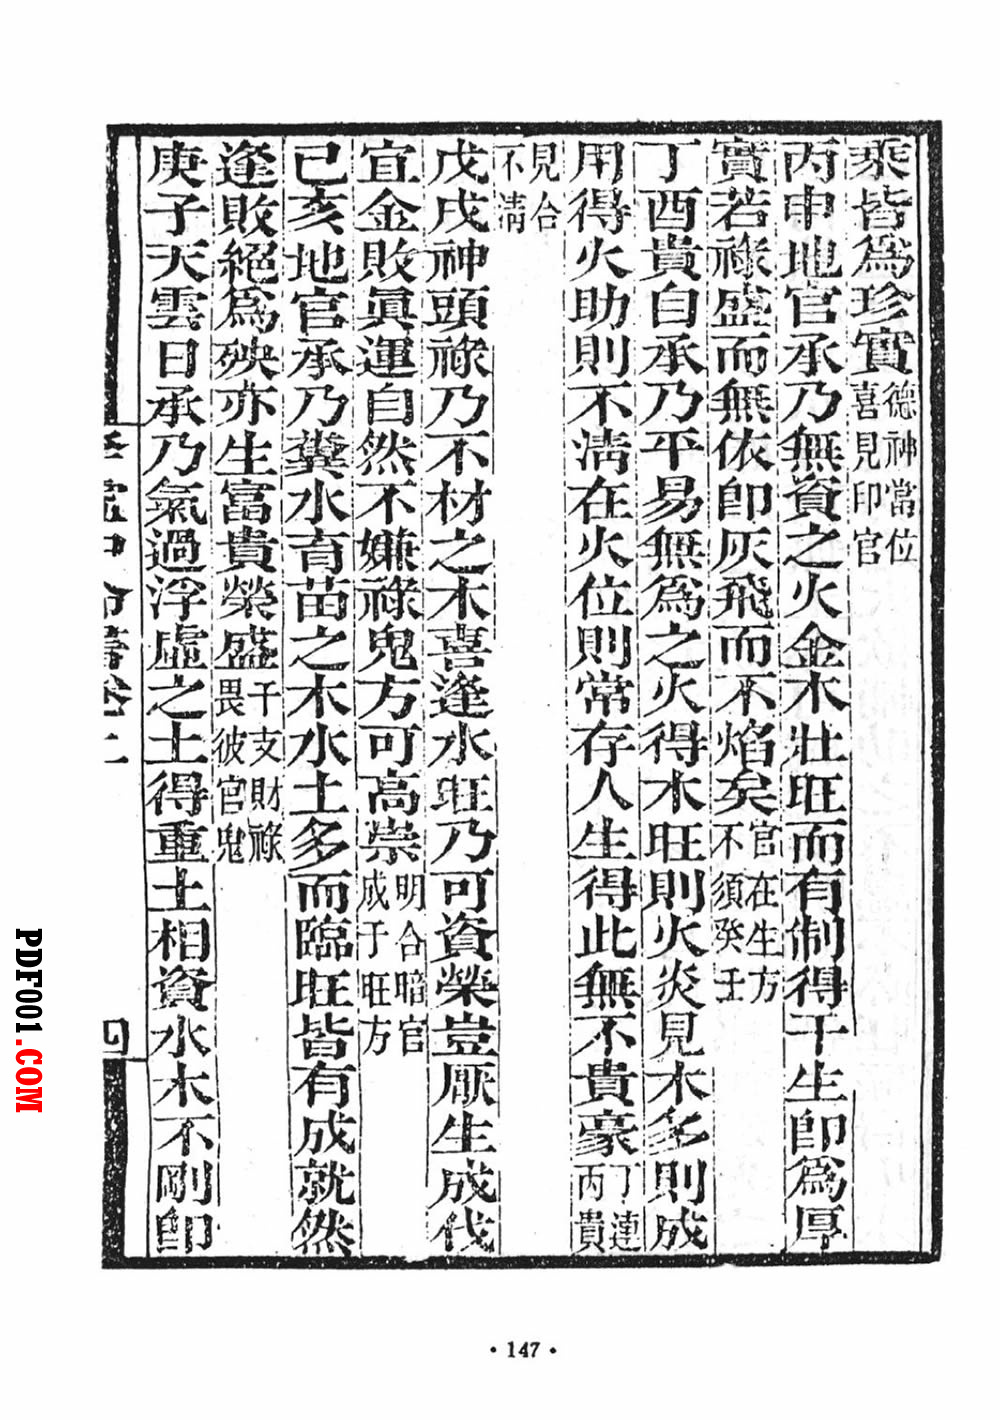 乘皆爲珍實德神當位喜見印官
丙申地官承乃無資之火金木壯旺而有制得干生卽爲厚
實若祿盛而無依卽灰飛而不焰矣官在生方不須癸壬
丁酉貴自承乃平易無爲之火得木旺則火炎見木多則成
用得火助則不清在火位則常存人生得此無不貴豪丁連丙貴
見合不清
戊戌神頭祿乃不材之木喜逢水旺乃可資榮豈厭生成伐
宜金敗眞運自然不嫌祿鬼方可高崇明合暗官成于旺方
己亥地官承乃糞水育苗之木水土多而臨旺皆有成就然
逢敗絕爲殃亦生富貴榮盛干支財祿畏彼官鬼
庚子天雲日承乃氣過浮虛之土得重土相資水木不剛卽
四
· 147 ·
PDF001.COM